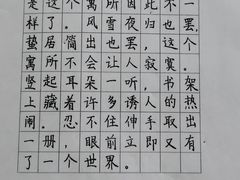 是这个寓所因此不一
样了。风雪夜归也罢,
蛰居简出也罢,这个
寓所不会让人寂寞。
竖起耳朵一听,书架
上藏着许多诱人的热
闹。忍不住伸手取出
一册,眼前立即又有
了一个世界。